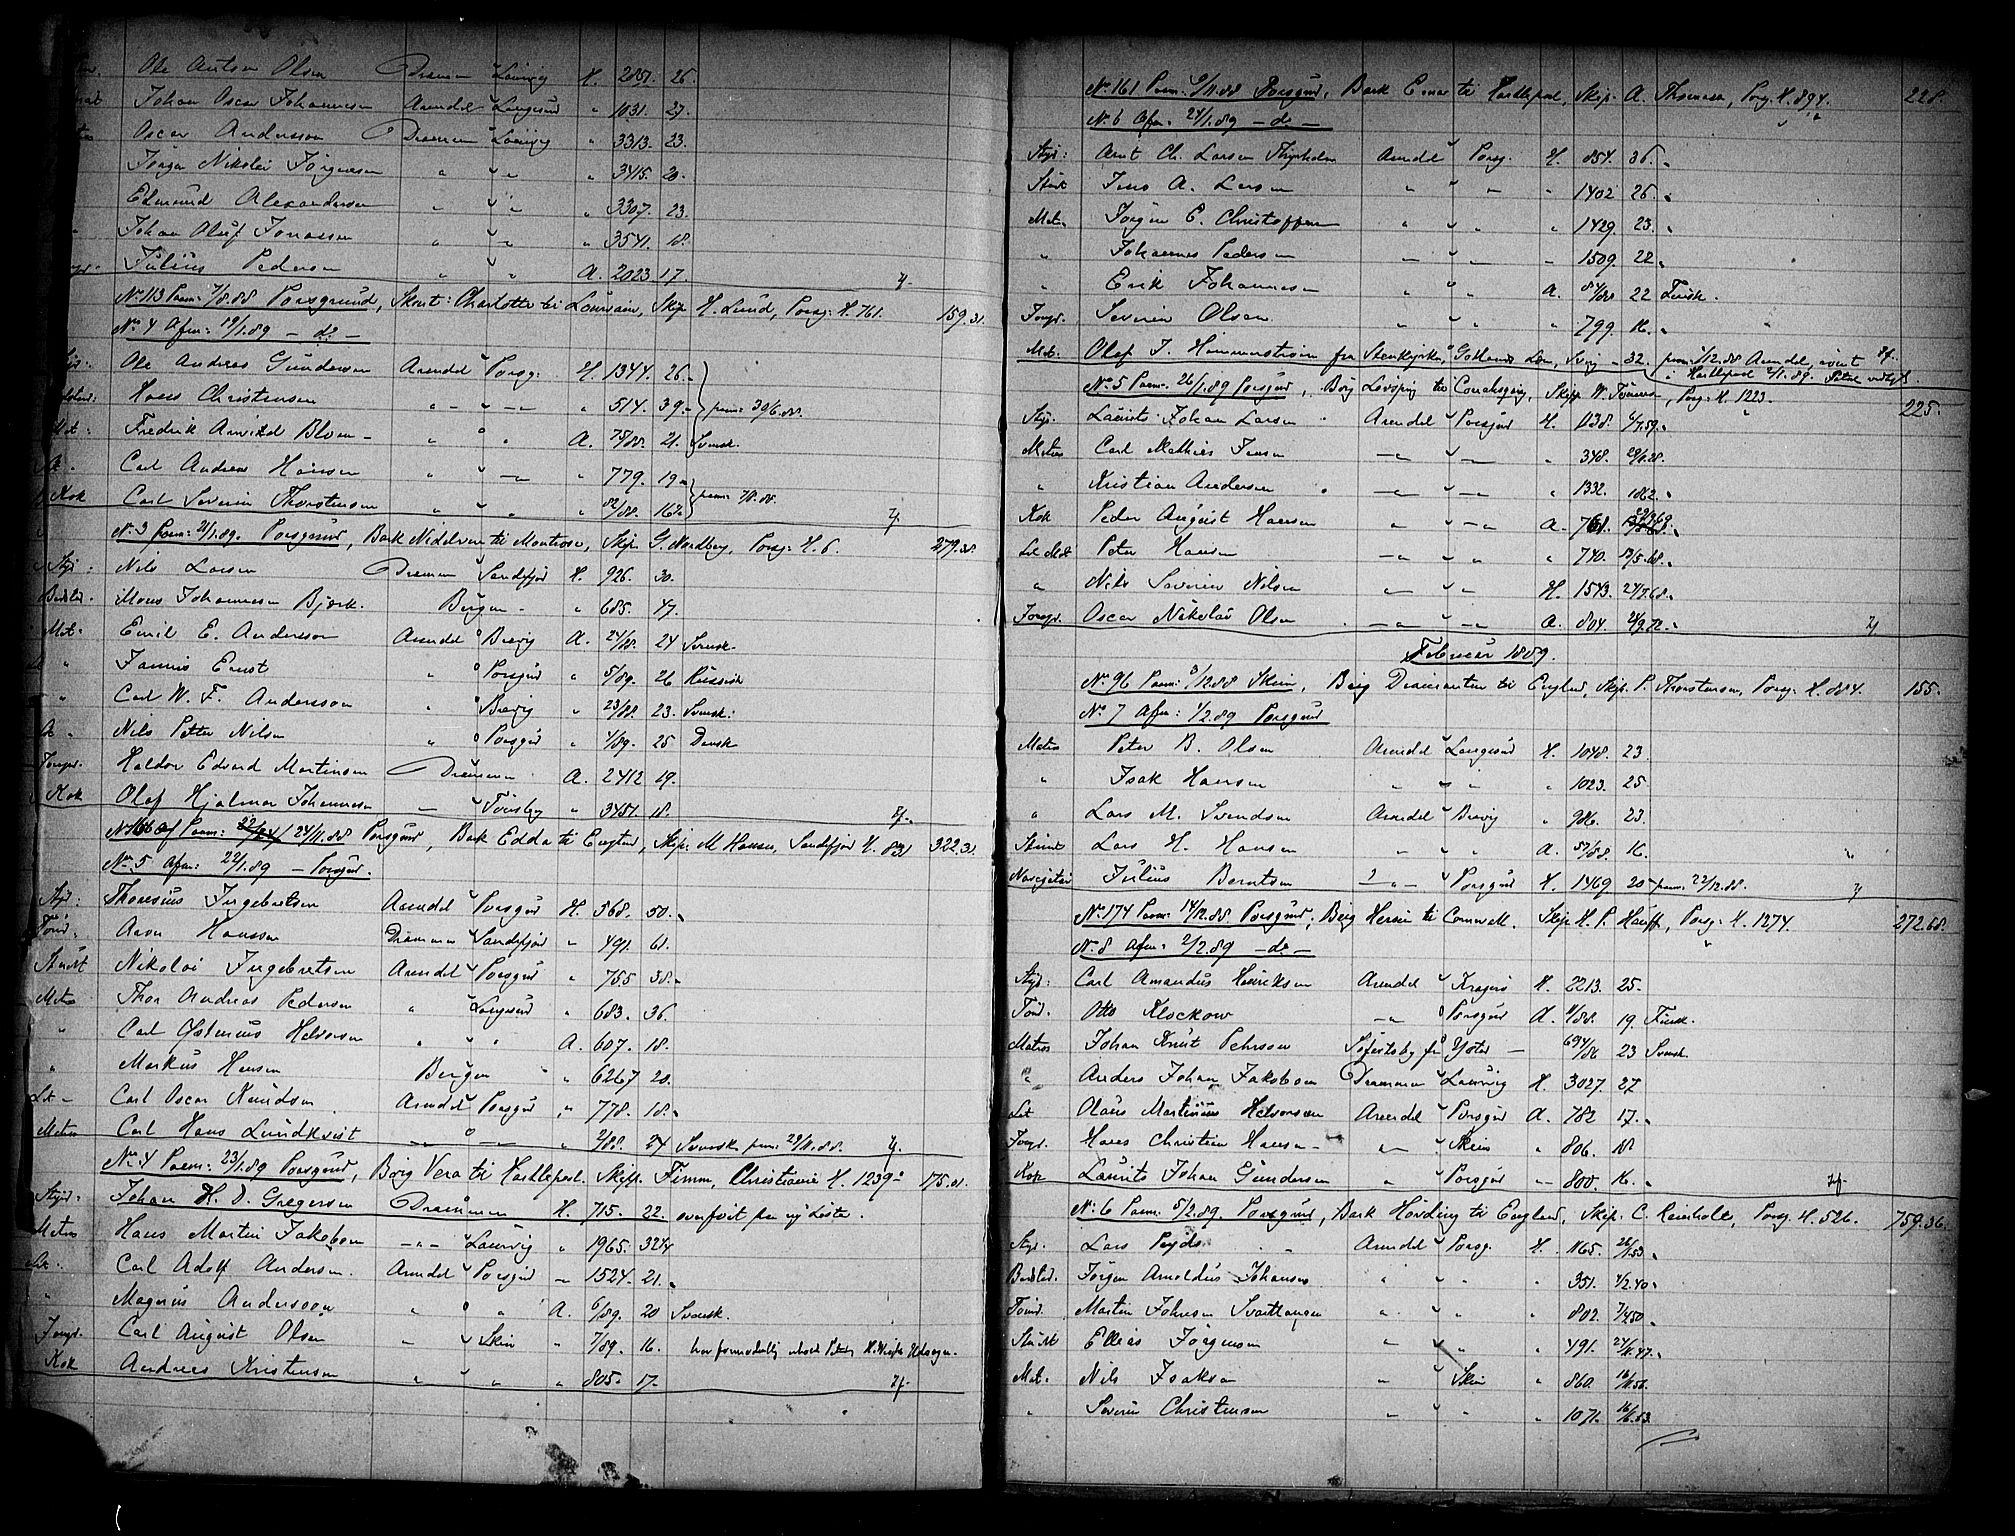 Ole Anton Olsen Drammen Laurvig H. 2851. 26.
Johan Oscar Johannesen Arendal Langesund " 1031. 27.
Oscar Andersson Drammen Laurvig " 3313. 23.
Jörgen Nikolai Jörgensen " " " 3415. 20.
Edmund Alexandersen " " " 3307. 23.
Johan Oluf Jonassen " " " 3541. 18.
Julius Pedersen " " A. 2023. 17.
No 113 Paam: 7/8.88 Porsgrund, Skont: Charlotte til Louvain, Skip. H. Lund, Porsg. H. 761. 159.31.
No 4 Afm: 19/1.89 - do -
Styr: Ole Andreas Gundersen Arendal Porsg. H. 1344. 26.
Hans Christensen " " " 514. 39. paam: 30/6.88.
Mat. Fredrik Arvid Blom " " A. 75/88. 21. Svensk.
Carl Andreas Hansen " " " 779. 19
Kok Carl Severin Thorstensen " " " 82/88. 16 paam: 7/8.88.
No 3 Paam: 21/1.89. Porsgrund, Bark Nidelven til Montrose, Skip. G. Nordberg, Porsg. H. 6. 279.38
Styr: Nils Larsen Drammen Sandefjord H. 926. 30.
Bedstid. Mons Johannesen Bjerk. Bergen - " 685. 47.
Mat. Emil E. Andersson Arendal Brevig A. 24/88. 24 Svensk.
" Jannis Ernst " Porsgrd " 5/89. 26 Russisk
" Carl W. F. Andersson " Brevig " 23/88. 23. Svensk.
Nils Peter Nilsen " Porsgrd " 4/89. 25 Dansk
Jungm. Haldor Edvard Martinsen Drammen A. 2412 19.
Kok Olaf Hjalmar Johannesen " Tönsberg " 3451. 18.
No 166 af Paam: 24/11.88 Porsgrund, Bark Edda til England, Skip. M. Hansen, Sandefjord H. 83 322.31.
No 5 Afm: 22/1.89 - Porsgrd.
Styr: Thoresius Ingebretsen Arendal Porsgrd H. 568. 50.
Tömd. Aron Hansen Drammen Sandefjord " 491. 61.
St&M Nikolai Ingebretsen Arendal Porsgrd " 755. 38.
Matros Thor Andreas Pedersen " Langesund " 683. 36.
" Carl Halvorsen " " A. 607. 18.
" Markus Hansen Bergen " 6267 20.
Let - Carl Oscar Knudsen Arendal Porsgrd " 778. 18.
Matros Carl Hans Lundkvist " " " 2/88. 24 Svensk paam: 29/11.88.
No 4 Paam: 23/1.89 Porsgrund, Brig Vera til Hartlepool. Skip. Fimm, Christiania H. 1239 175.01.
Styr: Johan H. D. Gregersen Drammen H. 715. 22. overfört fra ny Liste.
Matros Hans Martin Jakobsen " Laurvig " 1965. 32
Let. Carl Adolf Andersen. Arendal Porsgrd " 1524. 21.
" Magnus Andersson " " A. 6/89. 20 Svensk.
Jungm. Carl August Olsen " Skien " 7/89. 16.
Kok Andreas Kristensen " " " 805. 17.
No 161 Paam: 9/11.88 Porsgrund, Bark Einar til Hartlepool, Skip. A. Thomsen, Porsg. H. 894. 228.
No 6 Afm: 24/1.89 - do -
Styr: Arnt Ch. Larsen Thyrholm Arendal Porsg. H. 854. 36.
St&M Jens A. Larsen " " " 1402 26.
Mat. Jörgen E. Christoffersen " " " 1429. 23.
" Johannes Pedersen " " " 1509. 22.
" Erik Johannesen " " A. 84/88 22 Finsk.
Jungm. Severin Olsen " " " 799. 16.
Mat. Olaf J. Hammerström fra Stenkyrka, Gotlands Län, Sverig - 32. paam: 3/12.88 Arendal, römt
i Hartlepool 2/1.89.
No 5 Paam: 26/1.89 Porsgrund, Brig Lovspring til Skip. W. Tönnesen, Porsg. H. 1223. 225.
Styr. Laurits Johan Larsen Arendal Porsgrd H. 1138. 6/7.59.
Matros Carl Mathias Jensen " " " 348. 29/8.28.
" Kristian Andersen " " " 1332. 1862.
Kok Peder August Hansen " " A. 761.
Let Mat Peter Hansen " " " 740. 19/5.68.
" Nils Severin Nilsen " " H. 1543. 24/7.68.
Jungm. Oscar Nikolai Olsen " " A. 804. 24/9.72.
Februar 1889.
No 96 Paam: 3/12.88 Skien, Brig Diamanten til England, Skip. P. Thorstensen, Porsg. H. 884. 155.
No 7 Afm: 1/2.89 Porsgrund
Matros Peter B. Olsen Arendal Langesund H. 1048. 23
" Isak Hansen " " " 1023. 25
" Lars M. Svendsen Arendal Brevig " 986. 23.
Stuert Lars H. Hansen " " A. 57/88. 16.
Navigatör Julius Berntsen " Porsgrd H. 1469 20 - paam: 22/12.88.
No 174 Paam: 14/12.88 Porsgrund, Brig Hersir til Cornwall. Skip. H. P. Hauff, Porsg. H. 1274. 272.68.
No 8 Afm: 2/2.89 - do -
Styr: Carl Amandus Henriksen Arendal Kragerö H. 2213. 25.
Tömd. Otto Klockow " Porsgrd A. 4/88. 19. Finsk.
Matros Johan Knut Pehrson fra Ystad - 694/86 23 Svensk
" Anders Johan Jakobsen Drammen Laurvig H. 3027. 27
Let Olaus Martinius Halvorsen Arendal Porsgrd A. 782 17.
Jungm. Hans Christian Hansen " Skien " 806. 18
Kok Laurits Johan Gundersen " Porsgrd " 800. 16.
No 6 Paam: 5/2.89. Porsgrund, Bark Hövding til England, Skip. C. Reinholt, Porsg. H. 526. 759.36.
Styr. Lars Arendal Porsg. H. 1165. 26/1.53.
Bedstid. Jörgen Arnoldus Johansen " " " 351. 4/2.40.
Tömd. Martin Johnsen Svarthaugen " " " 802. 7/4.50
St&M Ellias Jörgensen " " " 491. 24/11.47.
Mat. Nils Isaksen " Skien " 860. 16/11.56.
" Severin Christensen " " " 1071. 16/6.53.